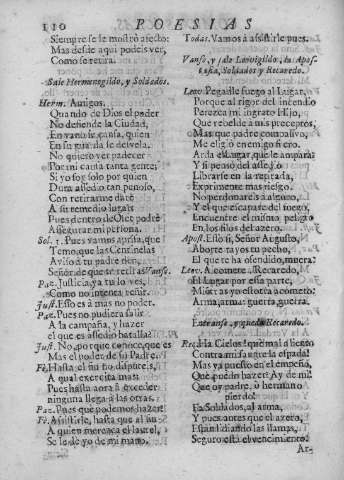 110 POESIAS
Siempre se le mostrò afecto:
Mas desde aqui podeis ver,
Como se retira.
Sale Hermenegildo, y Soldados.
Herm. Amigos,
Quando de Dios el poder
No defiende la Ciudad,
En vano se cansa, quien
En su guarda se desvela.
No quiero ver padecer
Por mi tanta gente;
Si yo soy solo por quien
Dura assedio tan penoso,
Con retirarme darè
A su remedio lugar:
Pues dentro de podrè
Assegurar mi persona.
Sol. 1. Pues vamos aprisa, que
Temo, que las Centinelas
Aviso à tu padre den,
Señor de que se retira. Vanse.
Paz. Justicia, ya tu lo ves,
Como no intenta reñir.
Just. Esso es à mas no poder.
Paz. Pues no pudiera salir
A la campaña, y hazer
el que es assedio batalla?
Just. No, porque conoce, que es
Mas el poder de su Padre.
Fè. Hasta el fin no disputeis,
A qual exercita mas:
Pues hasta aora à exceder
ninguna llega à las otras.
Paz. Pues què podemos hazer?
Fè. Assistirle, hasta que al fin
A quien merezca el laurel,
Se le dè yo de mi mano.
Todas. Vamos à assistirle pues.
Vanse, y sale Leovigildo, la Apostasia, Soldados y Recaredo.
Leov. Pegadle fuego al Lugar,
Porque al rigor del incendio
Perezca mi ingrato Hijo,
Que rebelde à mis preceptos,
Mas que padre compassivo,
Me eligiò enemigo fiero.
Arda el Lugar, que le ampara:
Y si pensò del assedio
Librarse en la retirada,
Experimente mas riesgo.
No perdonareis à alguno,
Y el que escapare del fuego,
Encuentre el mismo peligro
En los filos del azero.
Apost. Esso si, Señor Augusto,
Aborte rayos tu pecho,
El que te ha ofendido, muera.
Leov. A cometer, Recaredo,
El Lugar por essa parte,
Mientras yo essotra acometo:
Arma, arma: guerra, guerra.
Entranse, y queda Recaredo.
Rec. Ha Cielos! què mal
Contra mi sangre la espada!
Mas ya puesto en el empeño,
Què puedo hazer? Ay de mi!
Que oy padre, ò hermano
pierdo!
Ea Soldados, al arma,
Y pues antes que el azero,
Estàn lidiando las llamas,
Seguro està el vencimiento.
Ar-